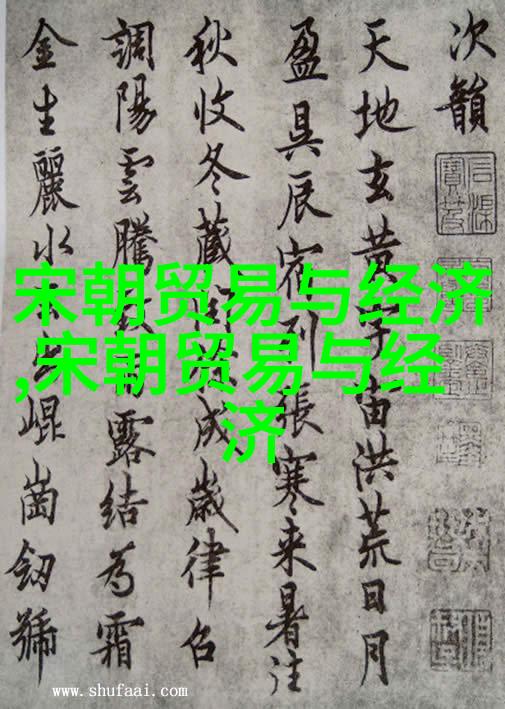 宋朝贸易与经济
,宋朝贸易与经
济
次韻
天地玄黄宇宙洪荒日月
盈昃辰宿列張寒来暑往
秋收冬蔵閏成歳律召
調陽雲騰致露結為霜
金生麗水出崐崗劒號
www.shufaai.com